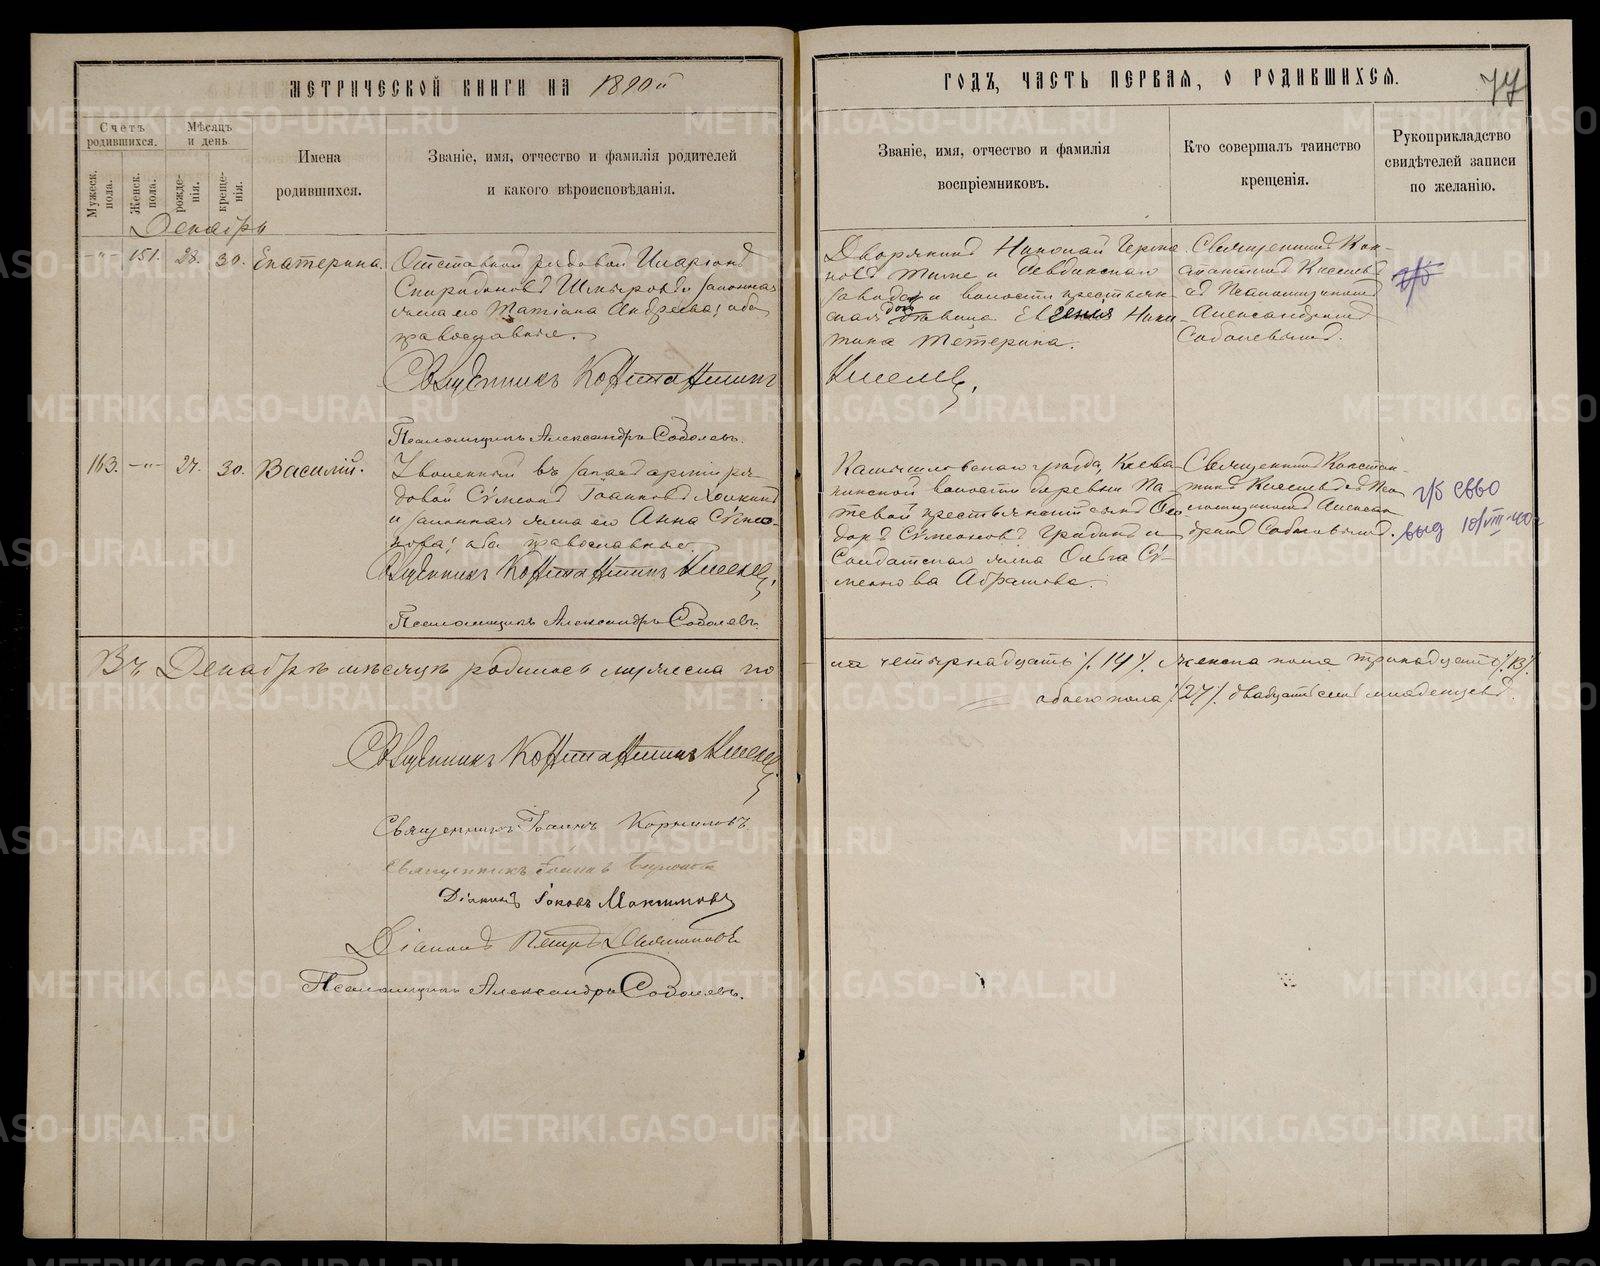 МЕТРИЧЕСКОЙ КНИГИ НА 1890й
ГОДЪ, ЧАСТЬ ПЕРВАЯ, О РОДИВШИХСЯ.
77
Счетъ родившихся.
Мужеск. пола.
Женск. пола.
Мѣсяцъ и день
рожденія.
крещенія.
Имена
родившихся.
Званіе, имя, отчество и фамилія родителей
и какого вѣроисповѣданія.
Званіе, имя, отчество и фамилія
воспріемниковъ.
Кто совершалъ таинство
крещенія.
Рукоприкладство
свидѣтелей записи
по желанію.
Декабрь
-"- 151. 28. 30. Екатерина.
Отставной рядовой Иларіонъ
Спиридоновъ и законная
жена его Татіана Андреева; оба
православные.
Священникъ Константинъ
Киселевъ.
Псаломщикъ Александръ Соболевъ.
Дворянинъ Николай
и Невьянскаго
завода и волости крестьян-
ская дочь дѣвица Евгенія Ники-
тина Тетерина.
Священникъ Кон-
стантинъ Киселевъ
съ Псаломщикомъ
Александромъ
Соболевымъ.
113. -"- 27. 30. Василій.
Уволенный въ запасъ арміи ря-
довой Сѵмеонъ Іоанновъ
и законная жена его Анна Сѵмео-
нова; оба православные.
Священникъ Константинъ Киселевъ.
Псаломщикъ Александръ Соболевъ.
Камышловскаго уѣзда, Клева-
кинской волости деревни
крестьянскій сынъ Ѳео-
доръ Сѵмеоновъ и
Солдатская жена Ольга Сѵ-
меонова Абрамова.
Священникъ Констан-
тинъ Киселевъ съ Пса-
ломщикомъ Алексан-
дромъ Соболевымъ.
г/б
г/б СВ60
выд 10/VIII-40г
Въ Декабрѣ мѣсяцѣ родилось мужеска по-
ла четырнадцать /.14/. женска пола тринадцать /.13/.
обоего пола /.27/. двадцать семь младенцевъ.
Священникъ Константинъ Киселевъ
Священникъ Іоаннъ Корниловъ
Священникъ Іоаннъ
Діаконъ Іаковъ Максимовъ
Діаконъ Петръ
Псаломщикъ Александръ Соболевъ.
METRIKI.GASO-URAL.RU